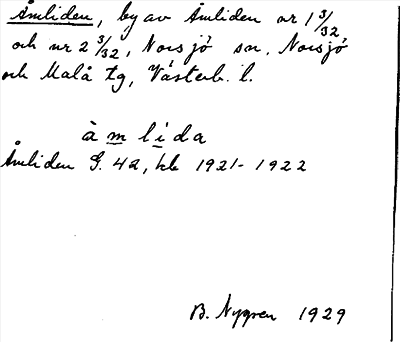 Åmliden, by av Åmliden nr 1 3/32
och nr 2 3/32, Norsjö sn, Norsjö
och Malå tg, Västerb. l.
àmlida
Åmliden G. 42, kb 1921-1922
B. Nygren 1929